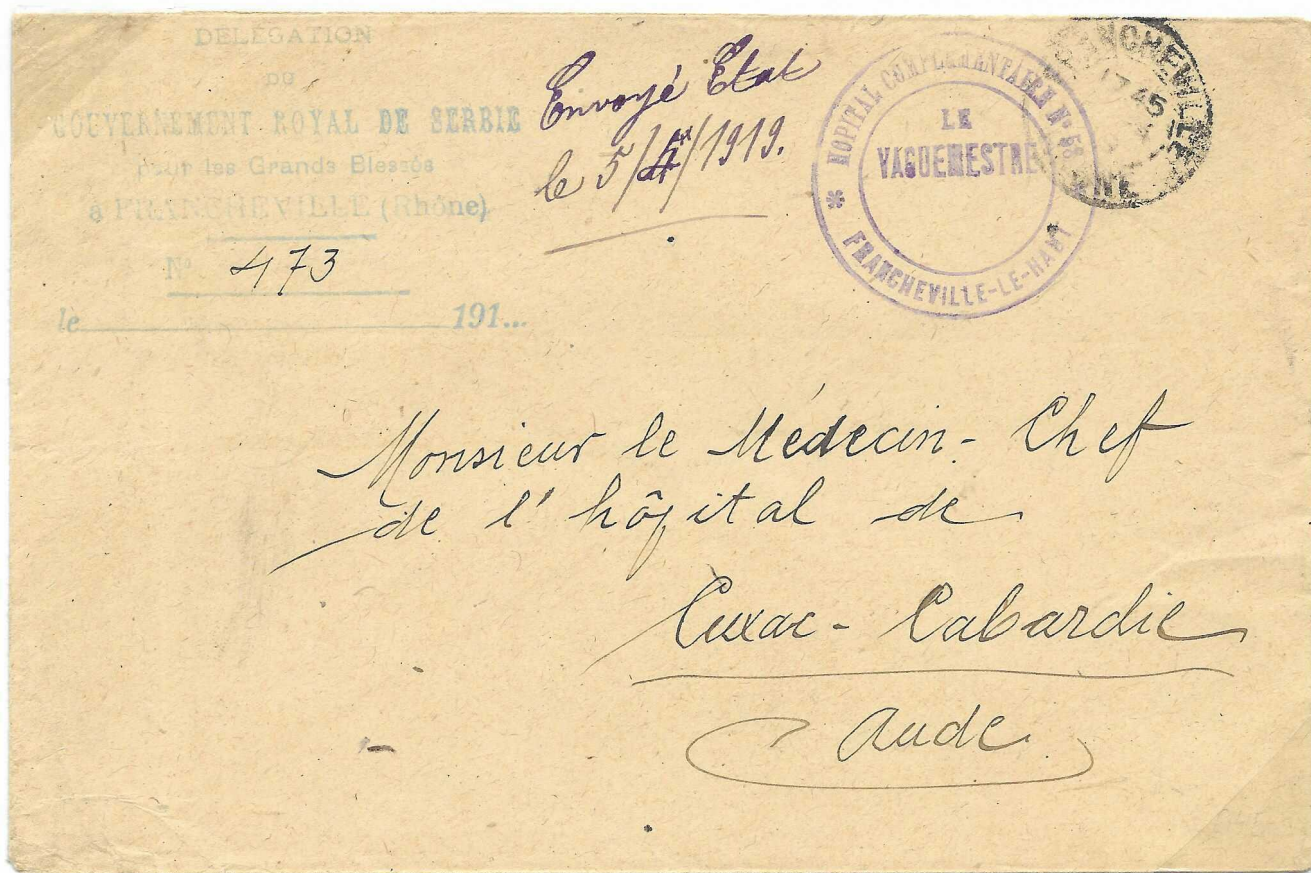 DÉLÉGATION
DU
GOUVERNEMENT ROYAL DE SERBIE
pour les Grands Blessés
à FRANCHEVILLE (Rhône)
N° 473
le 191...
Envoyé Etat
le 5/4/1919.
HOPITAL COMPLEMENTAIRE N° 58
LE
VAGUEMESTRE
* FRANCHEVILLE-LE-HAUT
FRANCHEVILLE
17 45
Monsieur le Médecin-Chef
de l'hôpital de
Cuxac-Cabardie
Aude